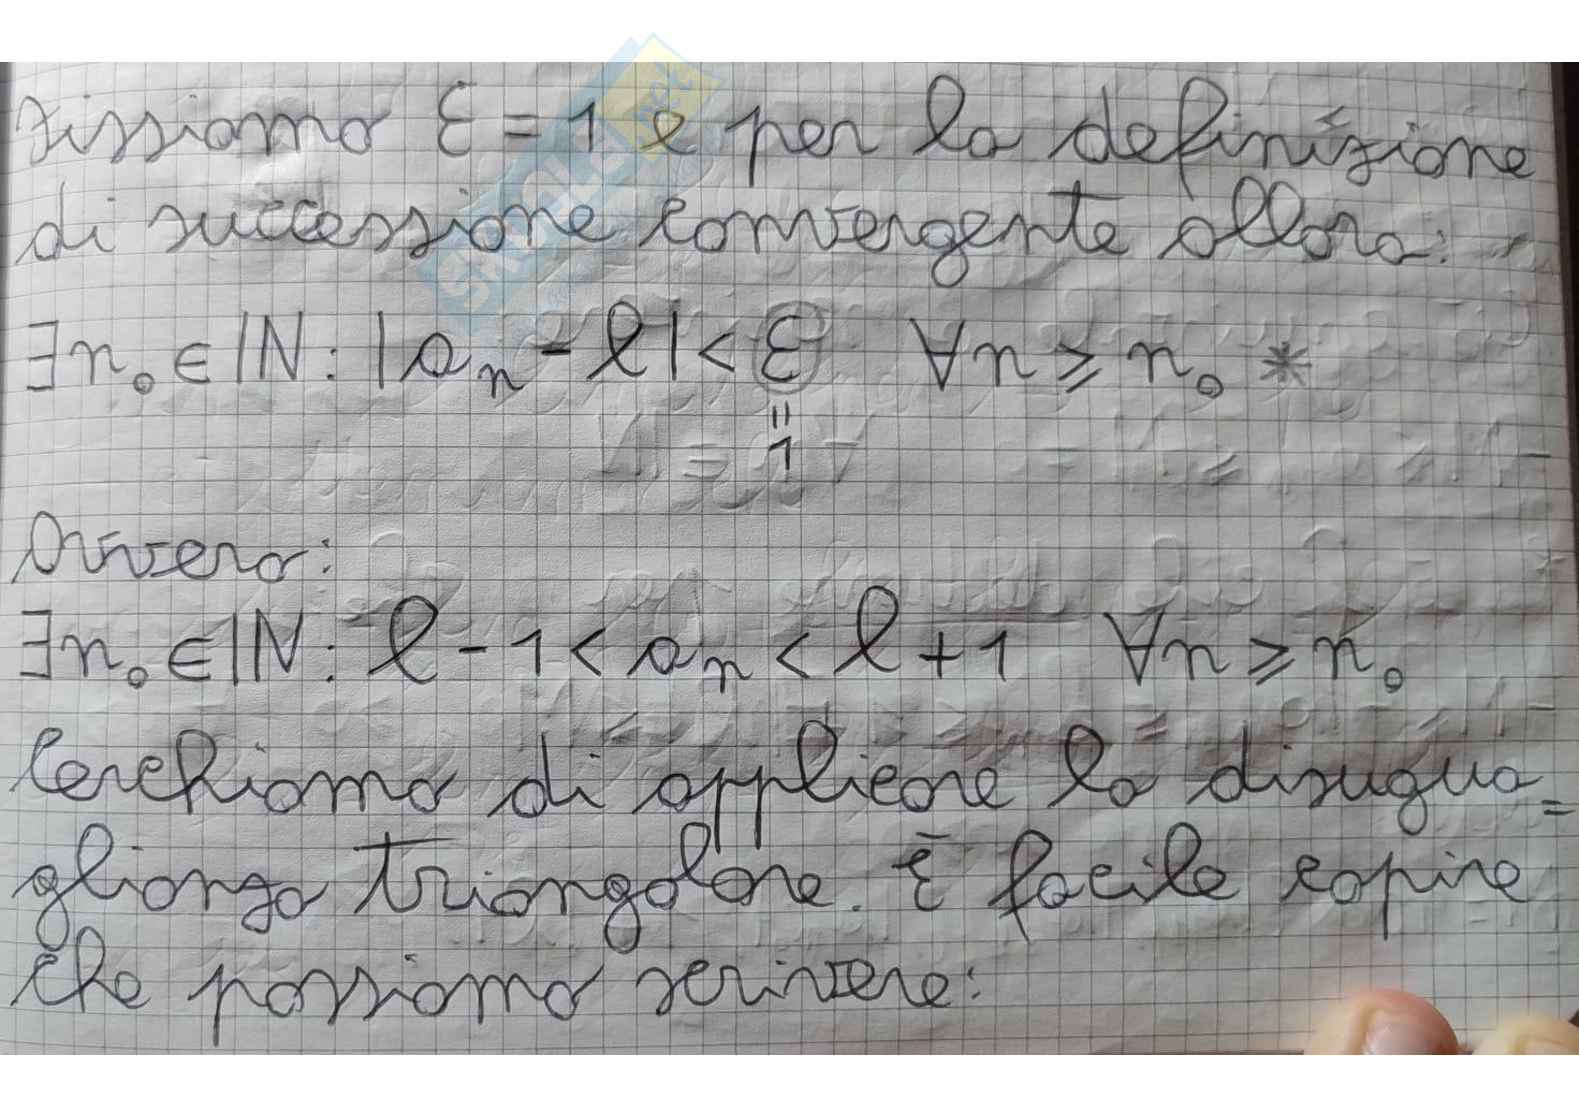 fissiamo ε = 1 e per la definizione
di successione convergente allora:
∃n₀ ∈ ℕ : |aₙ - l| < ε ∀n ⩾ n₀ *
=
1
Ovvero:
∃n₀ ∈ ℕ : l - 1 < aₙ < l + 1 ∀n ⩾ n₀
Cerchiamo di applicare la disugua=
glianza triangolare. È facile capire
che possiamo scrivere: